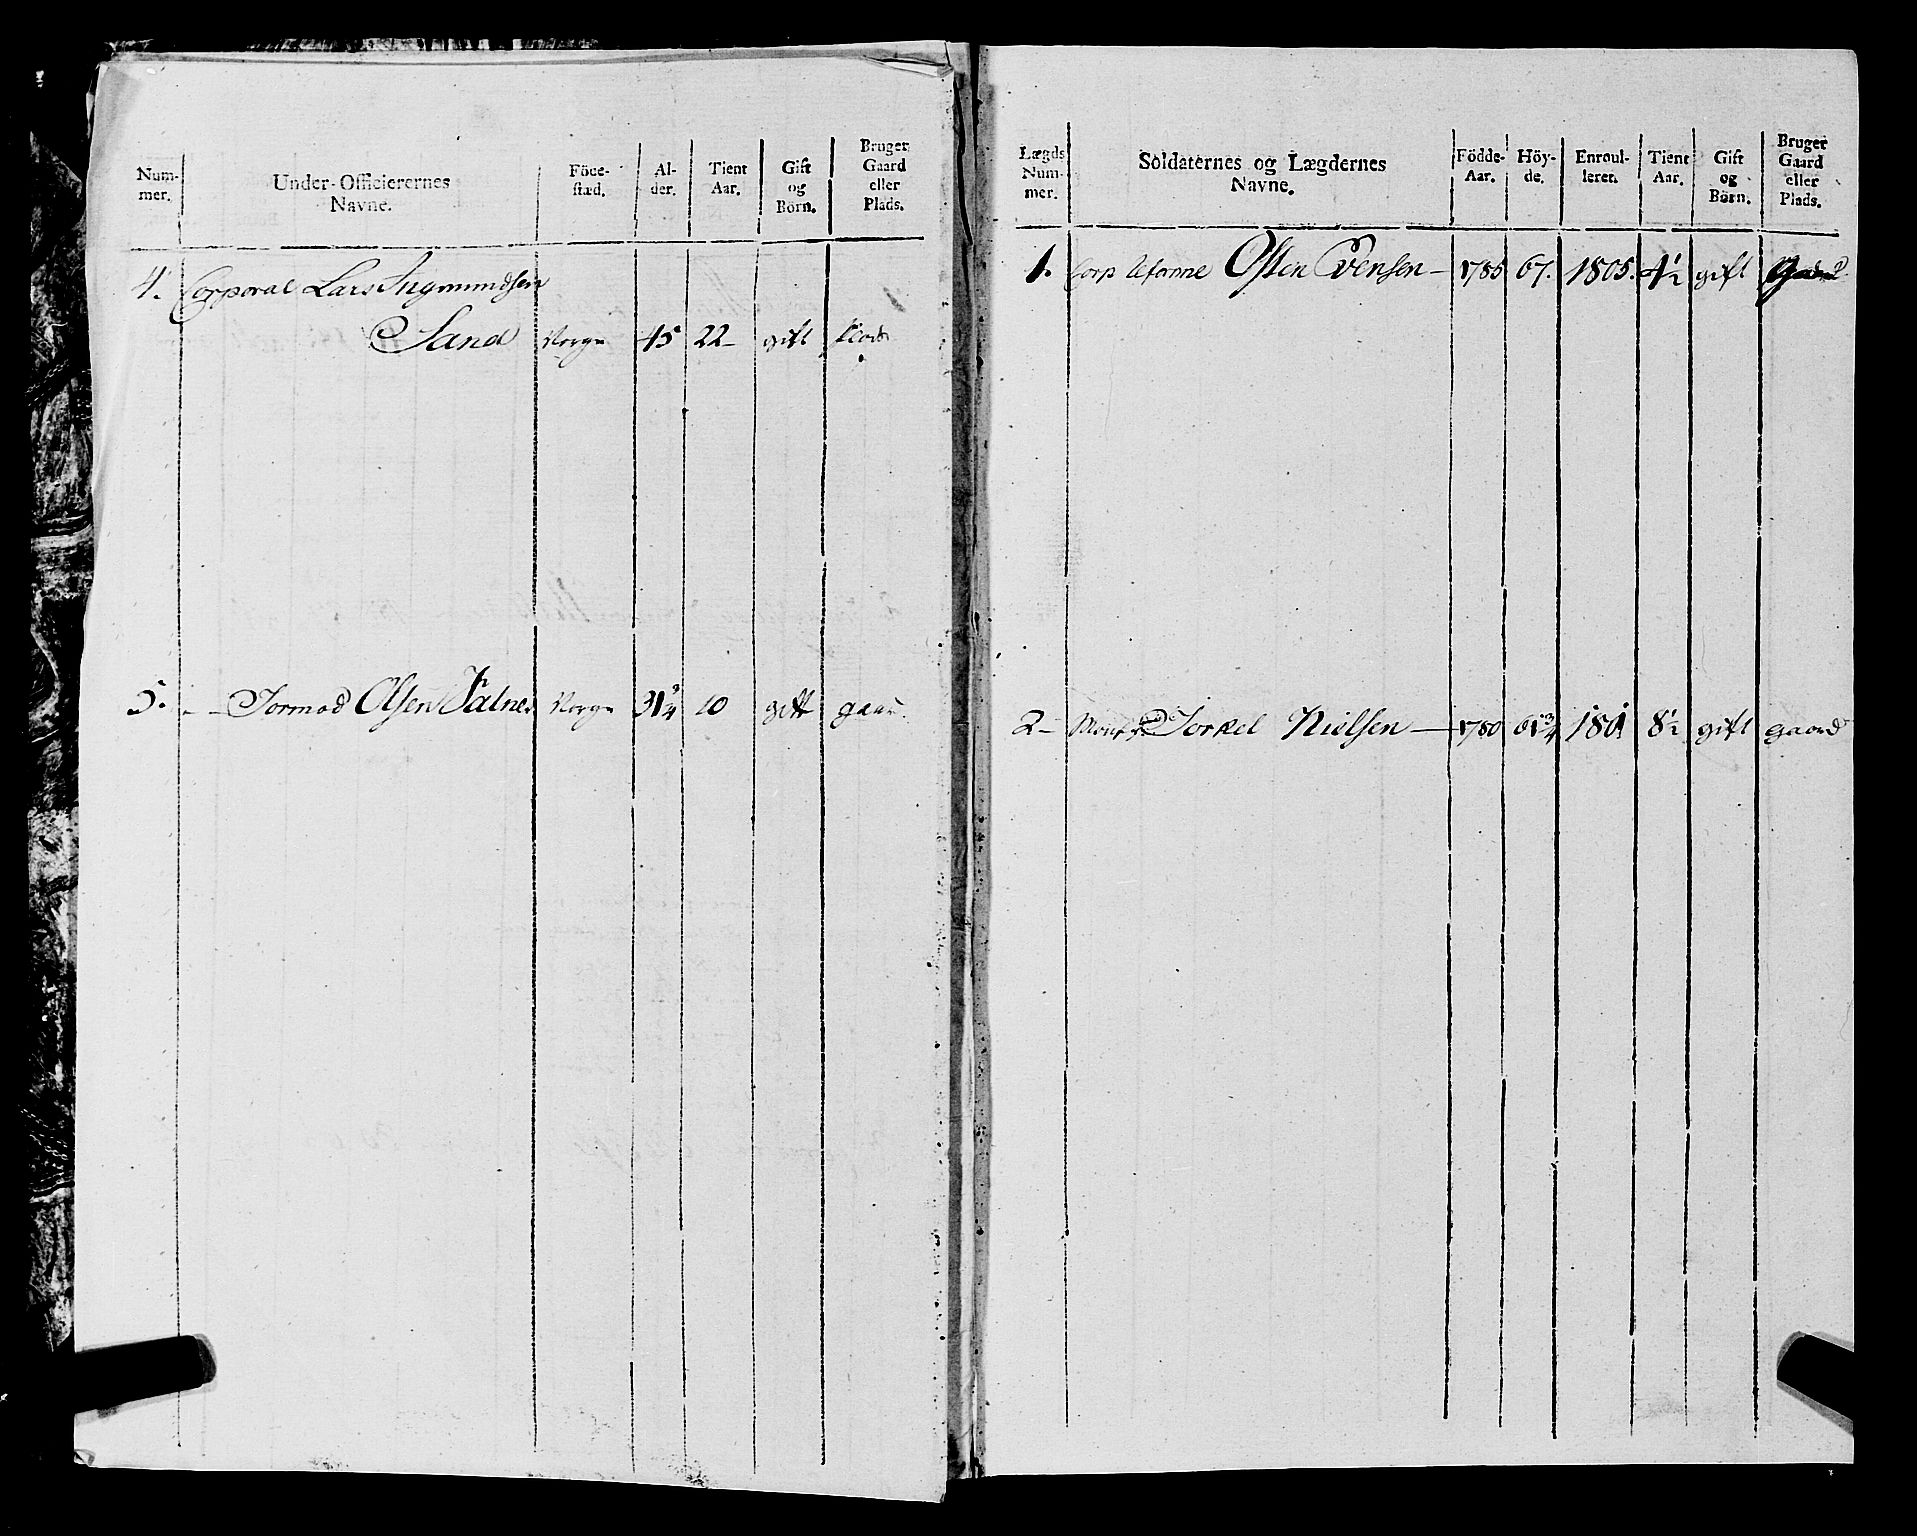 Num-
mer.
Under-Officierernes
Navne.
Föde-
stæd.
Al-
der.
Tient
Aar.
Gift
og
Börn.
Bruger
Gaard
eller
Plads.
4. Corporal Lars Ingmundsen
Sand Norge 45 22 - gift
5. - - Tormod Olsen Norge 31 3/4 10 gift gaar
Lægds
Num-
mer.
Soldaternes og Lægdernes
Navne.
Födde-
Aar.
Höy-
de.
Enroul-
leret.
Tient
Aar.
Gift
og
Börn.
Bruger
Gaard
eller
Plads.
1. Corp Osten Evensen - 1785 67. 1805. 4 1/2 gift Gaard
2 - Torkel Nielsen - 1780 61 3/4 1801 8 1/2 gift gaard